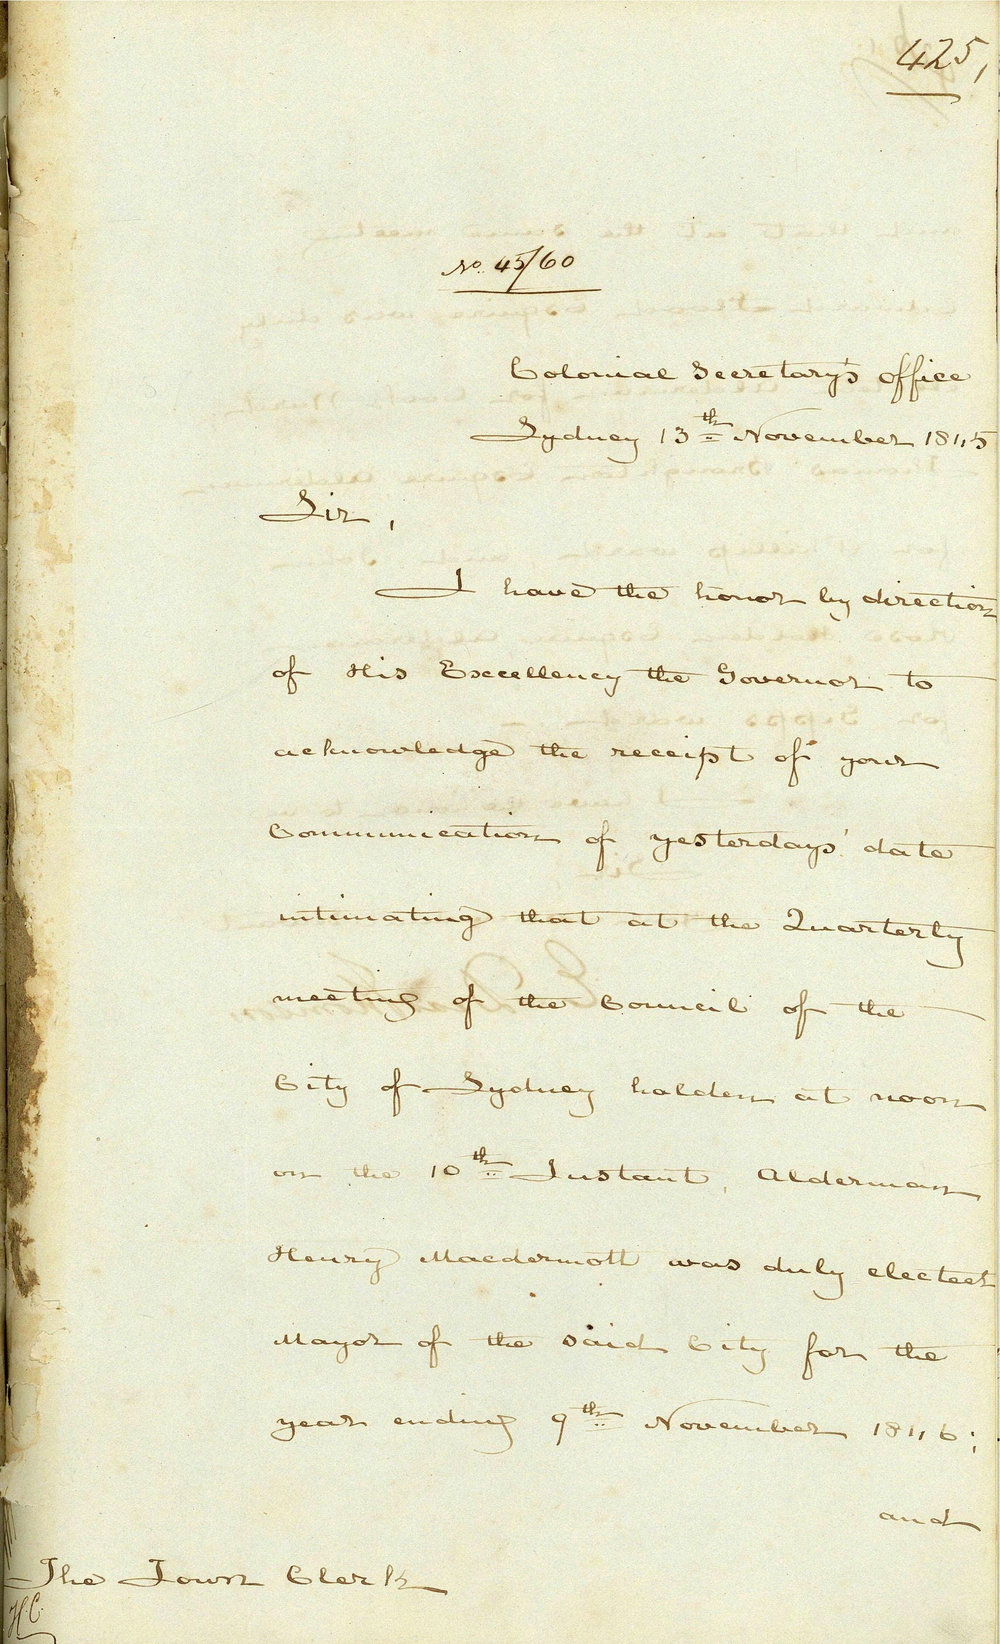 425,
No. 45/60
Colonial Secretary's office
Sydney 13th November 1845
Sir,
I have the honor by direction
of His Excellency the Governor to
acknowledge the receipt of your
Communication of yesterdays' date
intimating that at the Quarterly
meeting of the Council of the
City of Sydney holden at noon
on the 10th Instant, Alderman
Henry Macdermott was duly elected
Mayor of the said City for the
year ending 9th November 1846;
and
The Town Clerk
H.C.